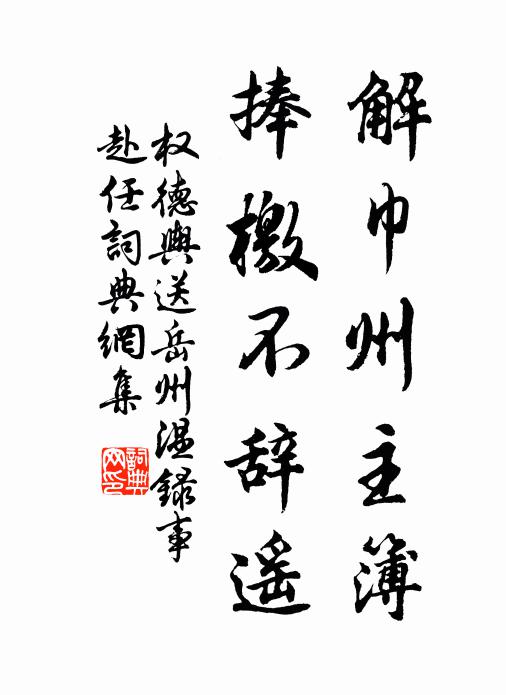 解巾州主簿
捧檄不辞遥
权德舆送岳州温录事
赴任词典网集
詞典网印